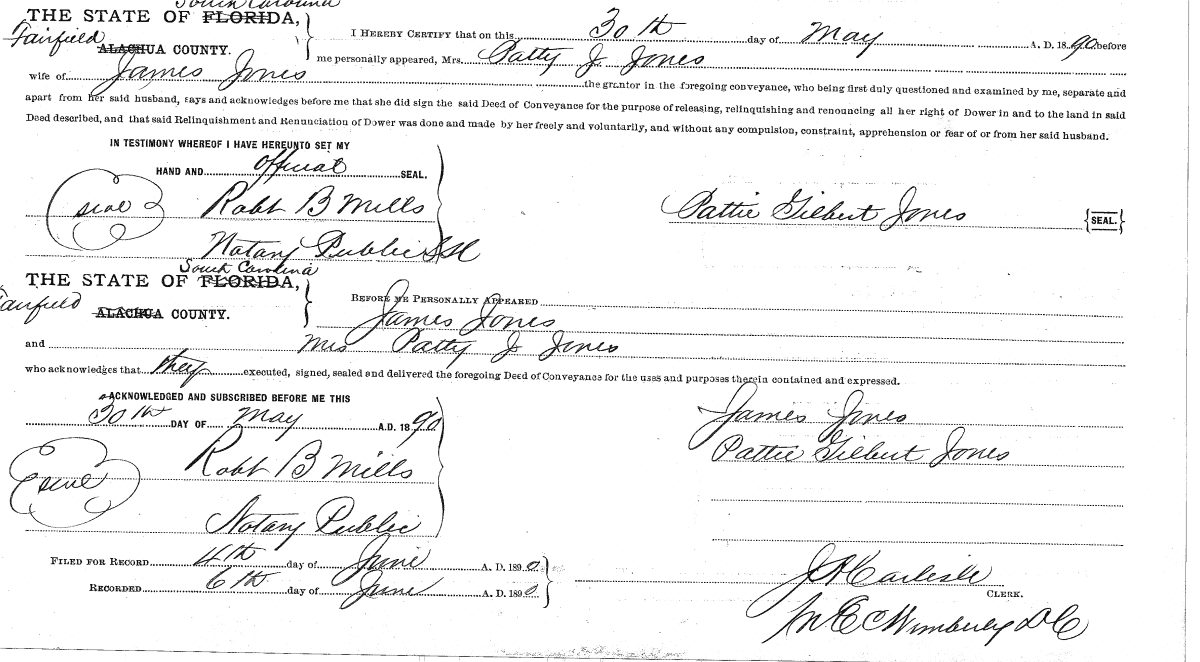 South Carolina
THE STATE OF FLORIDA,
Fairfield ALACHUA COUNTY.
I HEREBY CERTIFY that on this 30th day of May A. D. 1890 before
me personally appeared, Mrs. Patty J Jones
wife of James Jones the grantor in the foregoing conveyance, who being first duly questioned and examined by me, separate and
apart from her said husband, says and acknowledges before me that she did sign the said Deed of Conveyance for the purpose of releasing, relinquishing and renouncing all her right of Dower in and to the land in said
Deed described, and that said Relinquishment and Renunciation of Dower was done and made by her freely and voluntarily, and without any compulsion, constraint, apprehension or fear of or from her said husband.
IN TESTIMONY WHEREOF I HAVE HEREUNTO SET MY
HAND AND official SEAL.
seal Robt B Mills
Pattie Gilbert Jones {SEAL.}
Notary Public
South Carolina
THE STATE OF FLORIDA,
Fairfield ALACHUA COUNTY.
BEFORE ME PERSONALLY APPEARED
James Jones
and Mrs Patty J Jones
who acknowledges that they executed, signed, sealed and delivered the foregoing Deed of Conveyance for the uses and purposes therein contained and expressed.
ACKNOWLEDGED AND SUBSCRIBED BEFORE ME THIS
30th DAY OF May A.D. 1890
James Jones
seal Robt B Mills
Pattie Gilbert Jones
Notary Public
FILED FOR RECORD 4th day of June A. D. 1890
RECORDED 6th day of June A. D. 1890
J A Carlisle
CLERK.
Wimberly D C